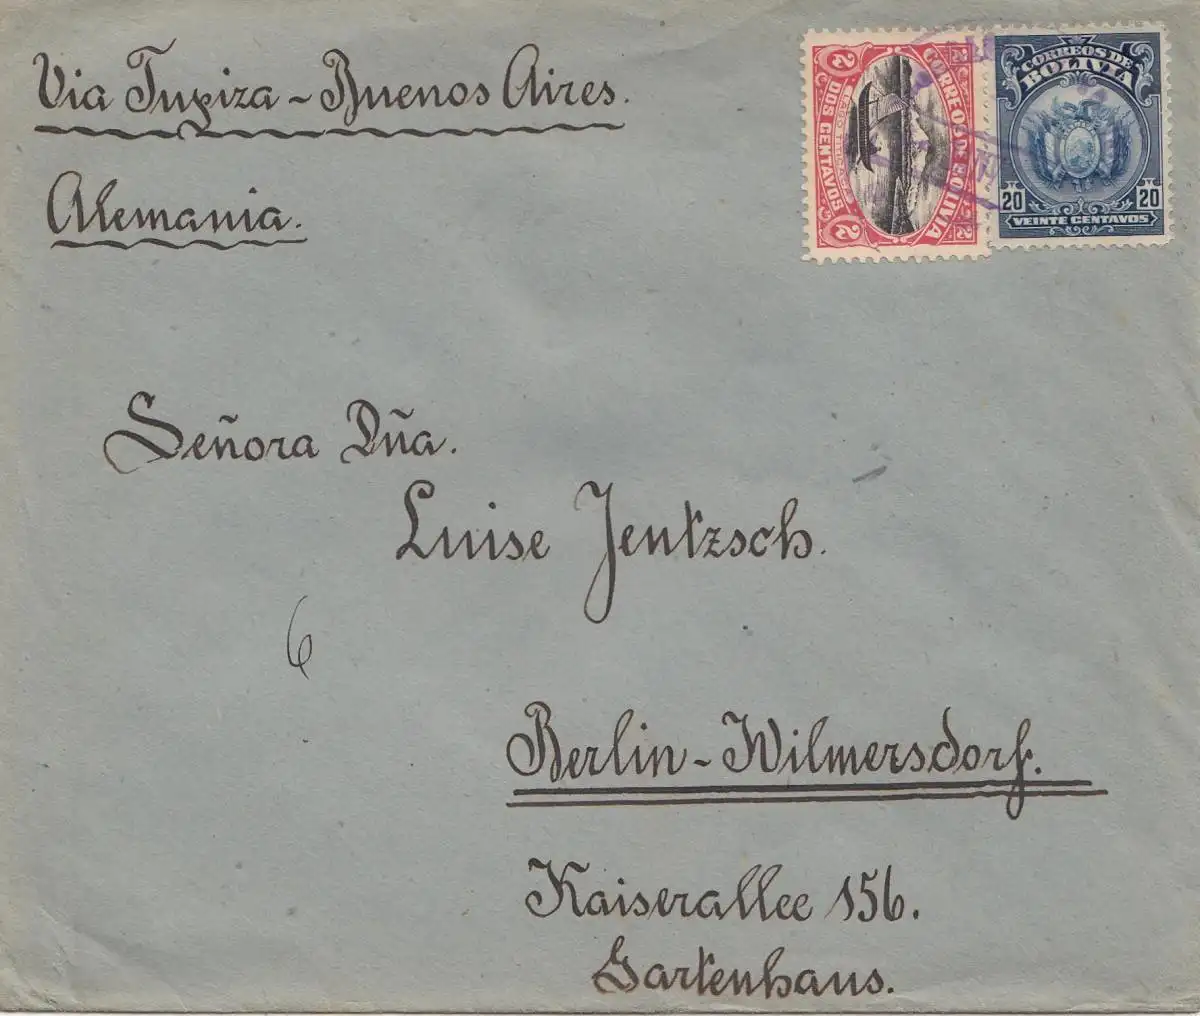 Via Tupiza - Buenos Aires.
Alemania.
CORREOS DE BOLIVIA
2 DOS CENTAVOS 2
CORREOS DE
BOLIVIA
20 20
VEINTE CENTAVOS
Señora Dña.
Luise Jentzsch.
6
Berlin - Wilmersdorf.
Kaiserallee 156.
Gartenhaus.